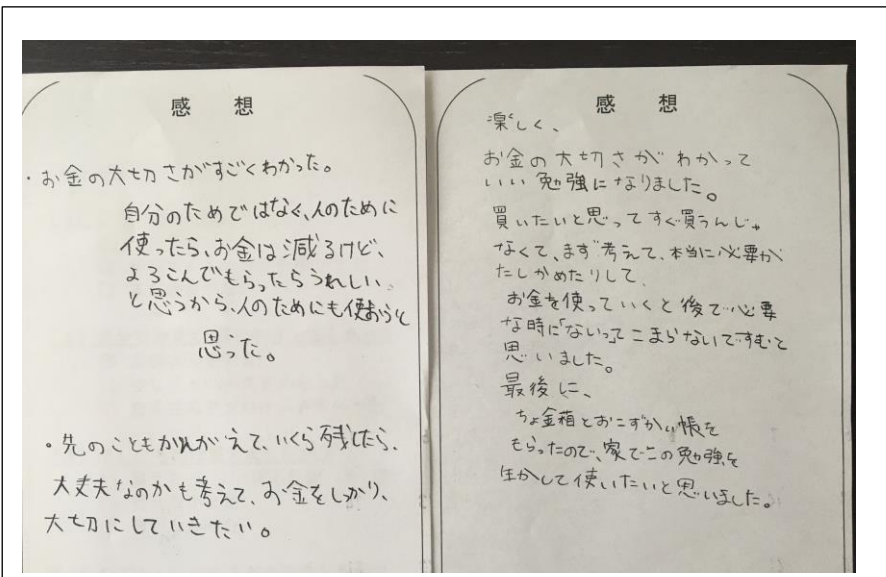 感想
・お金の大切さがすごくわかった。
自分のためではなく、人のために
使ったら、お金は減るけど、
よろこんでもらったらうれしい。
と思うから、人のためにも使おうと
思った。
・先のこともかんがえて、いくら残したら、
大丈夫なのかも考えて、お金をしっかり、
大切にしていきたい。
感想
楽しく、
お金の大切さがわかって
いい勉強になりました。
買いたいと思ってすぐ買うんじゃ
なくて、まず考えて、本当に必要か
たしかめたりして、
お金を使っていくと後で必要
な時に「ないっ」てこまらないですむと
思いました。
最後に、
ちょ金箱とおこずかい帳を
もらったので、家でこの勉強を
生かして使いたいと思いました。